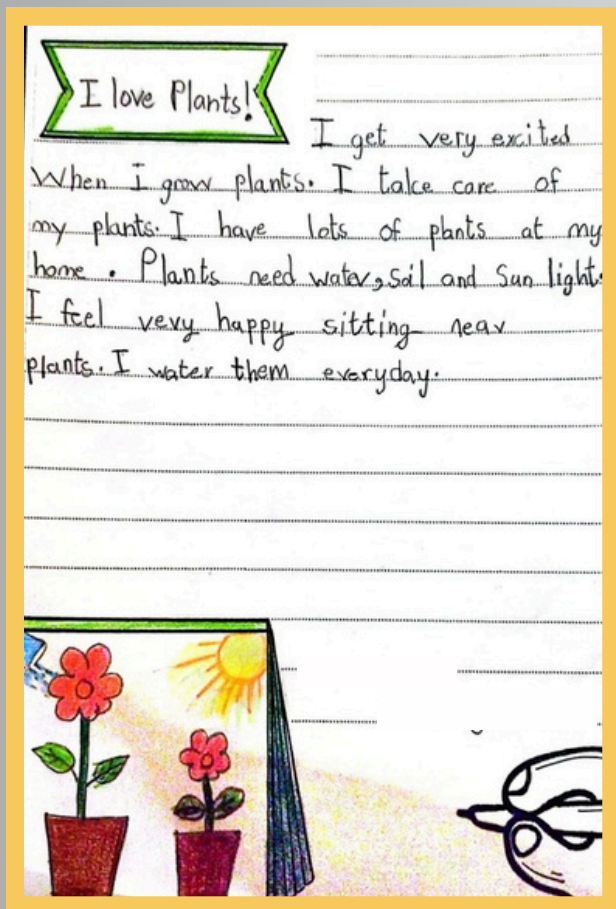 I love Plants!
I get very excited
When i grow plants. I take care of
my plants. I have lots of plants at my
home. Plants need water, Soil and Sun light.
I feel very happy sitting near
plants. I water them everyday.